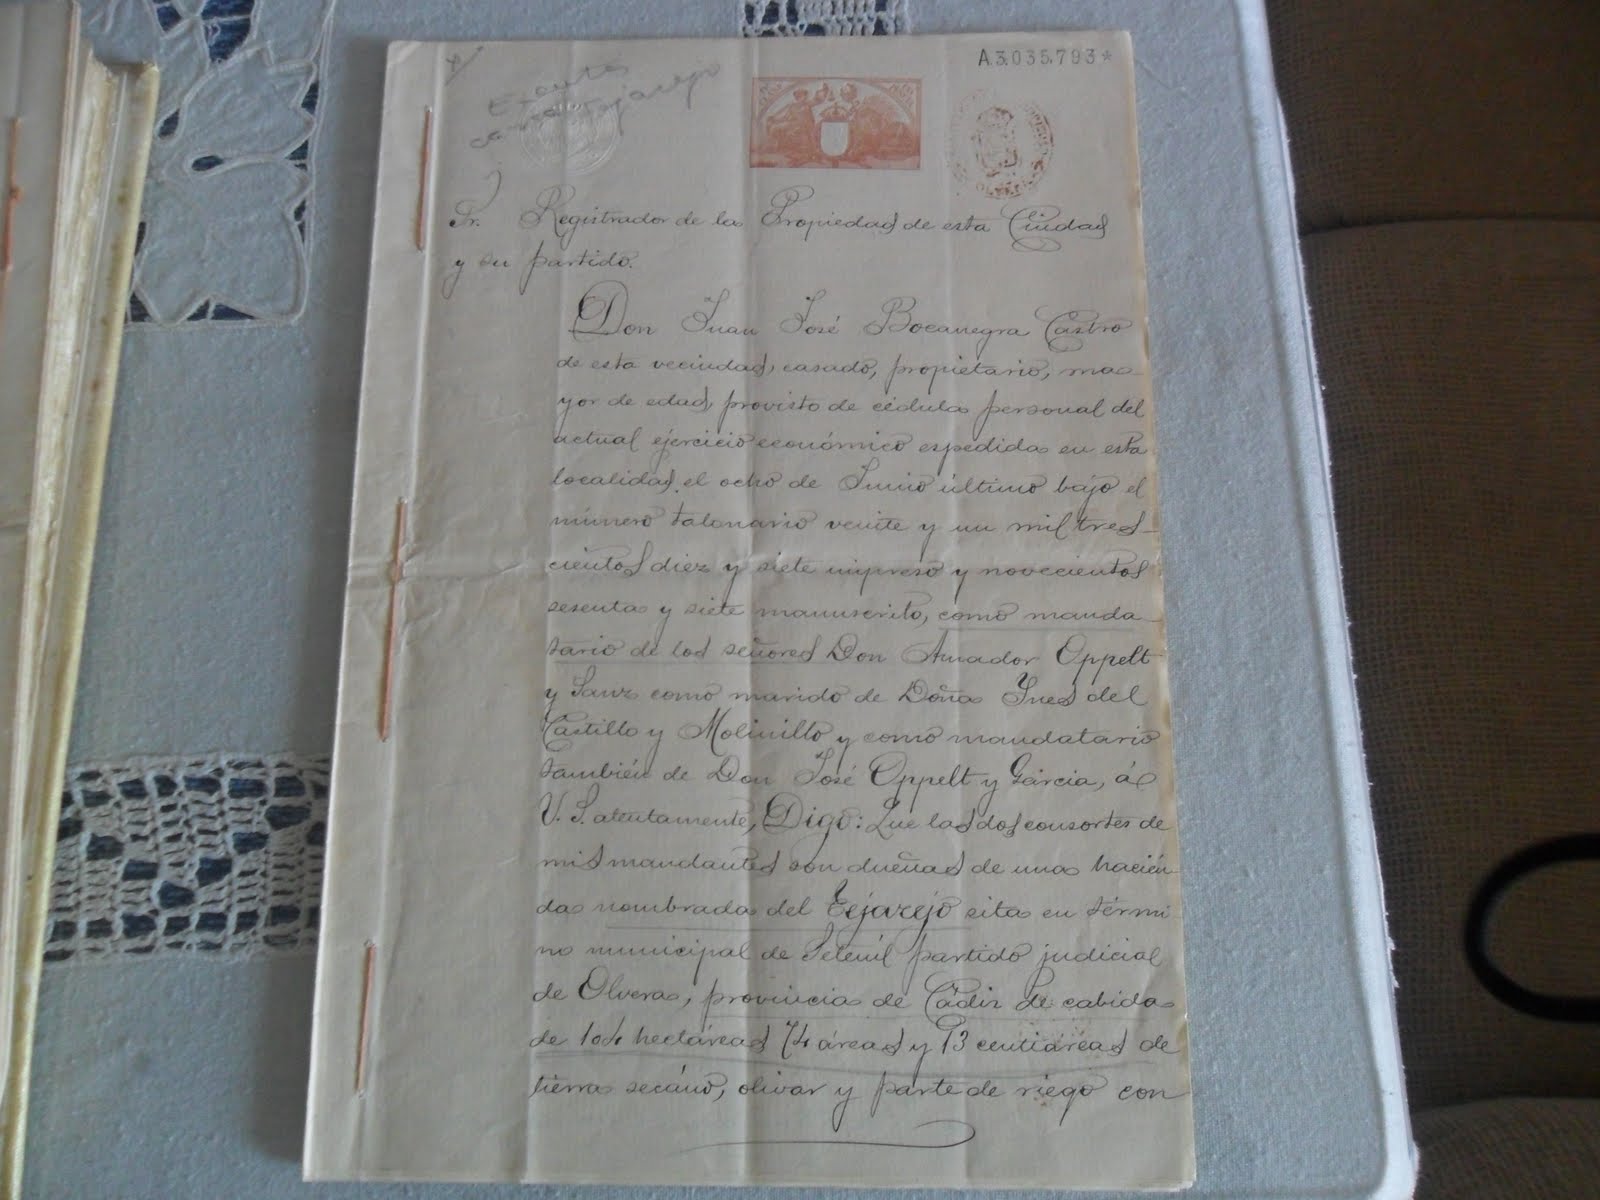 A.3.035.793*
Sr. Registrador de la Propiedad de esta Ciudad
y su partido.
Don Juan José Bocanegra Castro
de esta vecindad, casado, propietario, ma-
yor de edad, provisto de cédula personal del
actual ejercicio económico espedida en esta
localidad, el ocho de Junio último bajo el
número talonario veinte y un mil tres-
cientos diez y siete impreso y novecientos
sesenta y siete manuscrito, como manda-
tario de los señores Don Amador Oppelt
y Sanz como marido de Doña Ynes del
Castillo y Molinillo y como mandatario
también de Don José Oppelt y García, á
V. S. atentamente, Digo: Que las dos consortes de
mis mandantes son dueñas de una hacien-
da nombrada del Tejarejo sita en térmi-
no municipal de Setenil partido judicial
de Olvera, provincia de Cádiz de cabida
de 104 hectáreas 74 áreas y 93 centiáreas de
tierra secano, olivar y parte de riego con